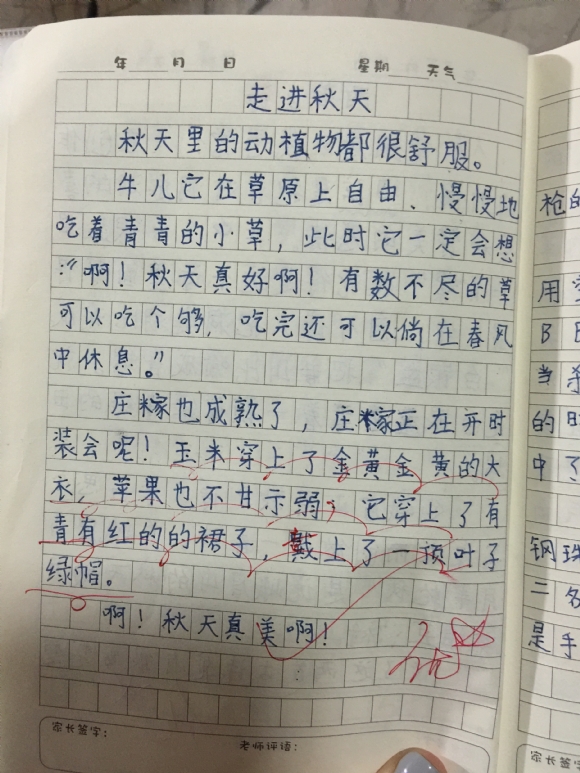 年 月 日 星期 天气
走进秋天
秋天里的动植物都很舒服。
牛儿它在草原上自由、慢慢地
吃着青青的小草，此时它一定会想
:“啊！秋天真好啊！有数不尽的草
可以吃个够，吃完还可以倘在春风
中休息。”
庄稼也成熟了，庄稼正在开时
装会呢！玉米穿上了金黄金黄的大
衣，苹果也不甘示弱，它穿上了有
青有红的的裙子，戴上了一顶叶子
绿帽。
啊！秋天真美啊！
优
家长签字：
老师评语：
枪的
用
B
当
的时
中了
钢珠
二名
是手
家长签字：